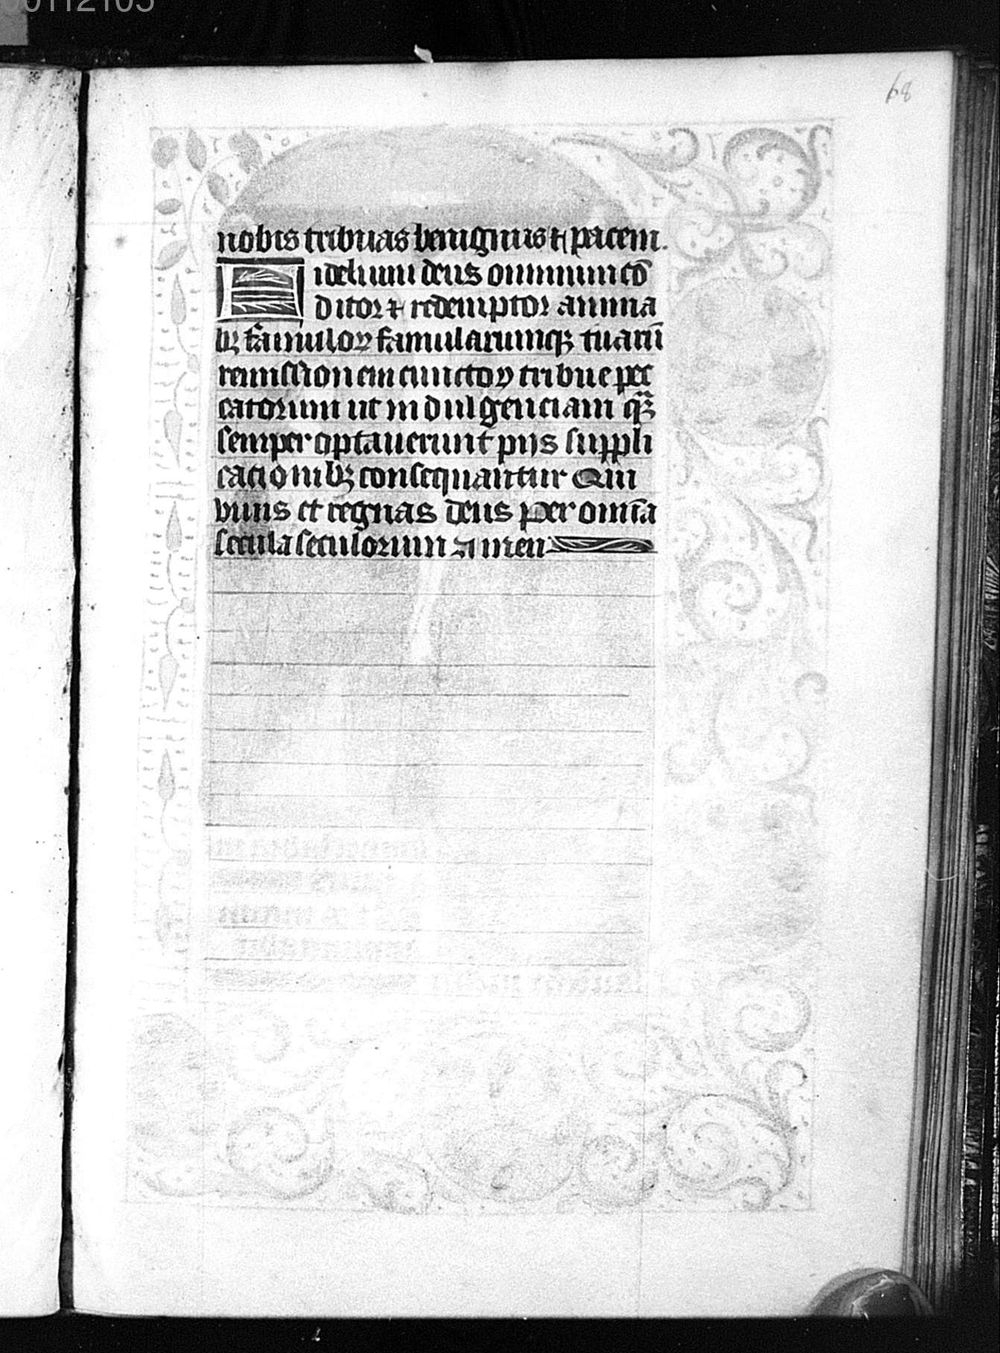 00112105
68
nobis tribuas benignus et pacem.
Fidelium deus omnium cō
ditor et redemptor anima
bꝫ famuloꝝ famularumqꝫ tuarū
remissionem cunctoꝝ tribue pec
catorum ut indulgenciam qꝫ̄
semper optauerunt pijs suppli
cacionibꝫ consequantur Qui
viuis et regnas deus Per omīa
secula seculorum Amen